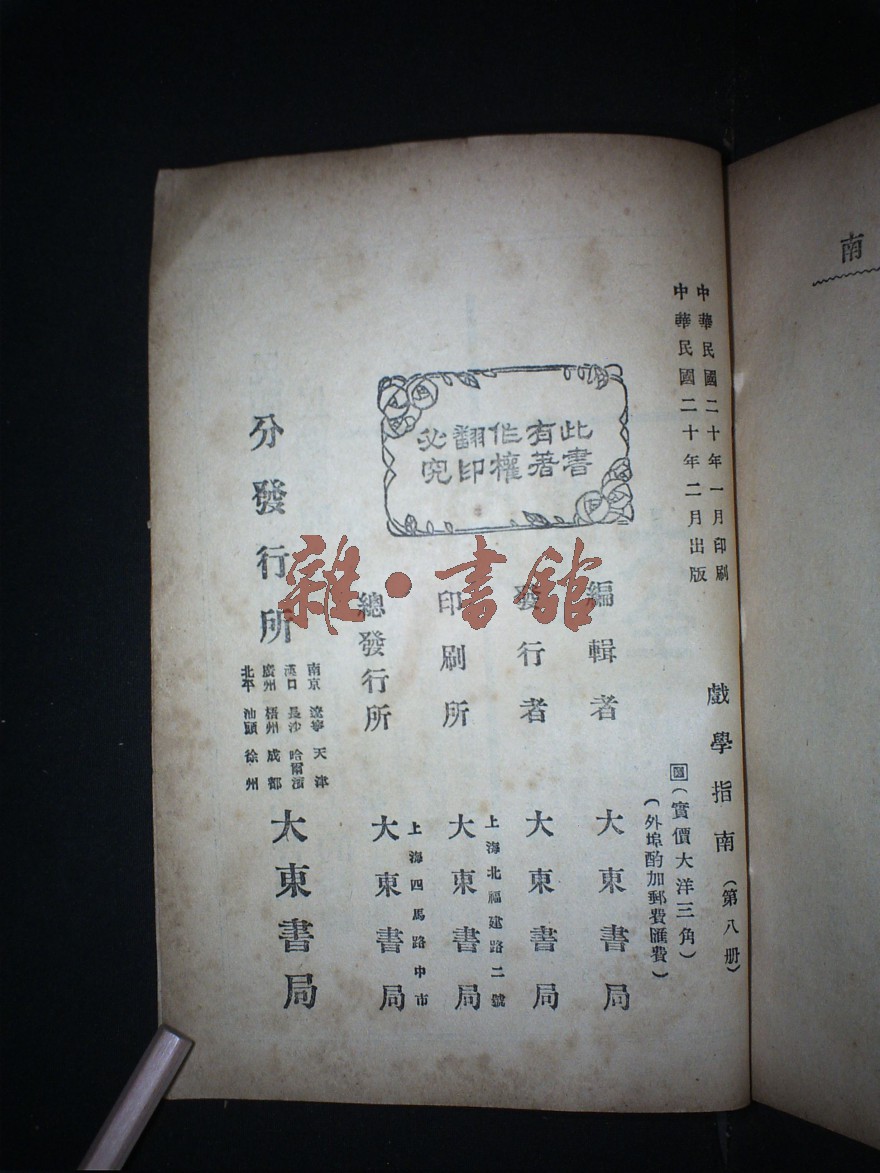 南
中華民國二十年一月印刷
中華民國二十年二月出版
戲學指南（第八册）
（實價大洋三角）
（外埠酌加郵費匯費）
此書
有著
作權
翻印
必究
編輯者 大東書局
發行者 大東書局
上海北福建路二號
印刷所 大東書局
上海四馬路中市
總發行所 大東書局
分發行所
南京 遼寧 天津
漢口 長沙 哈爾濱
廣州 梧州 成都
北平 汕頭 徐州
大東書局
雜·書舘